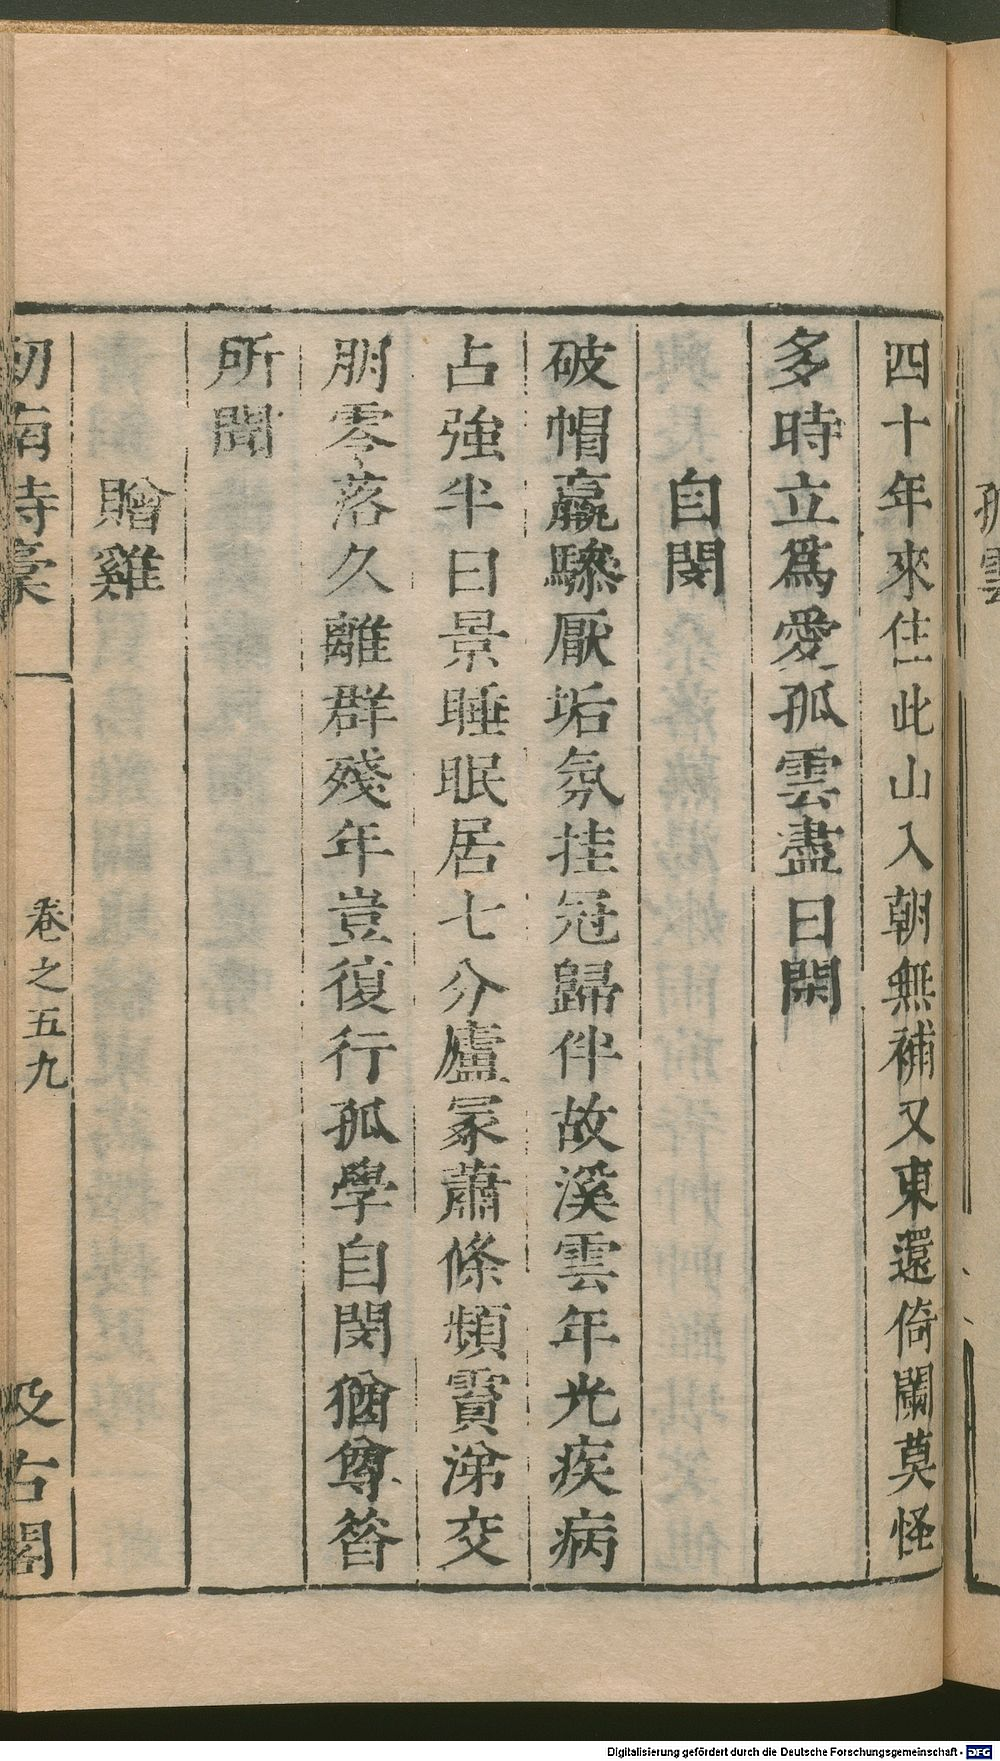 孤雲
四十年來住此山入朝無補又東還倚闌莫怪
多時立爲愛孤雲盡日閑
自閔
破帽羸驂厭垢氛挂冠歸伴故溪雲年光疾病
占強半日景睡眠居七分廬冢蕭條頻霣涕交
朋零落久離群殘年豈復行孤學自閔猶尊昝
所聞
贈雞
劒南詩稾
卷之五九
汲古閣
Digitalisierung gefördert durch die Deutsche Forschungsgemeinschaft - DFG